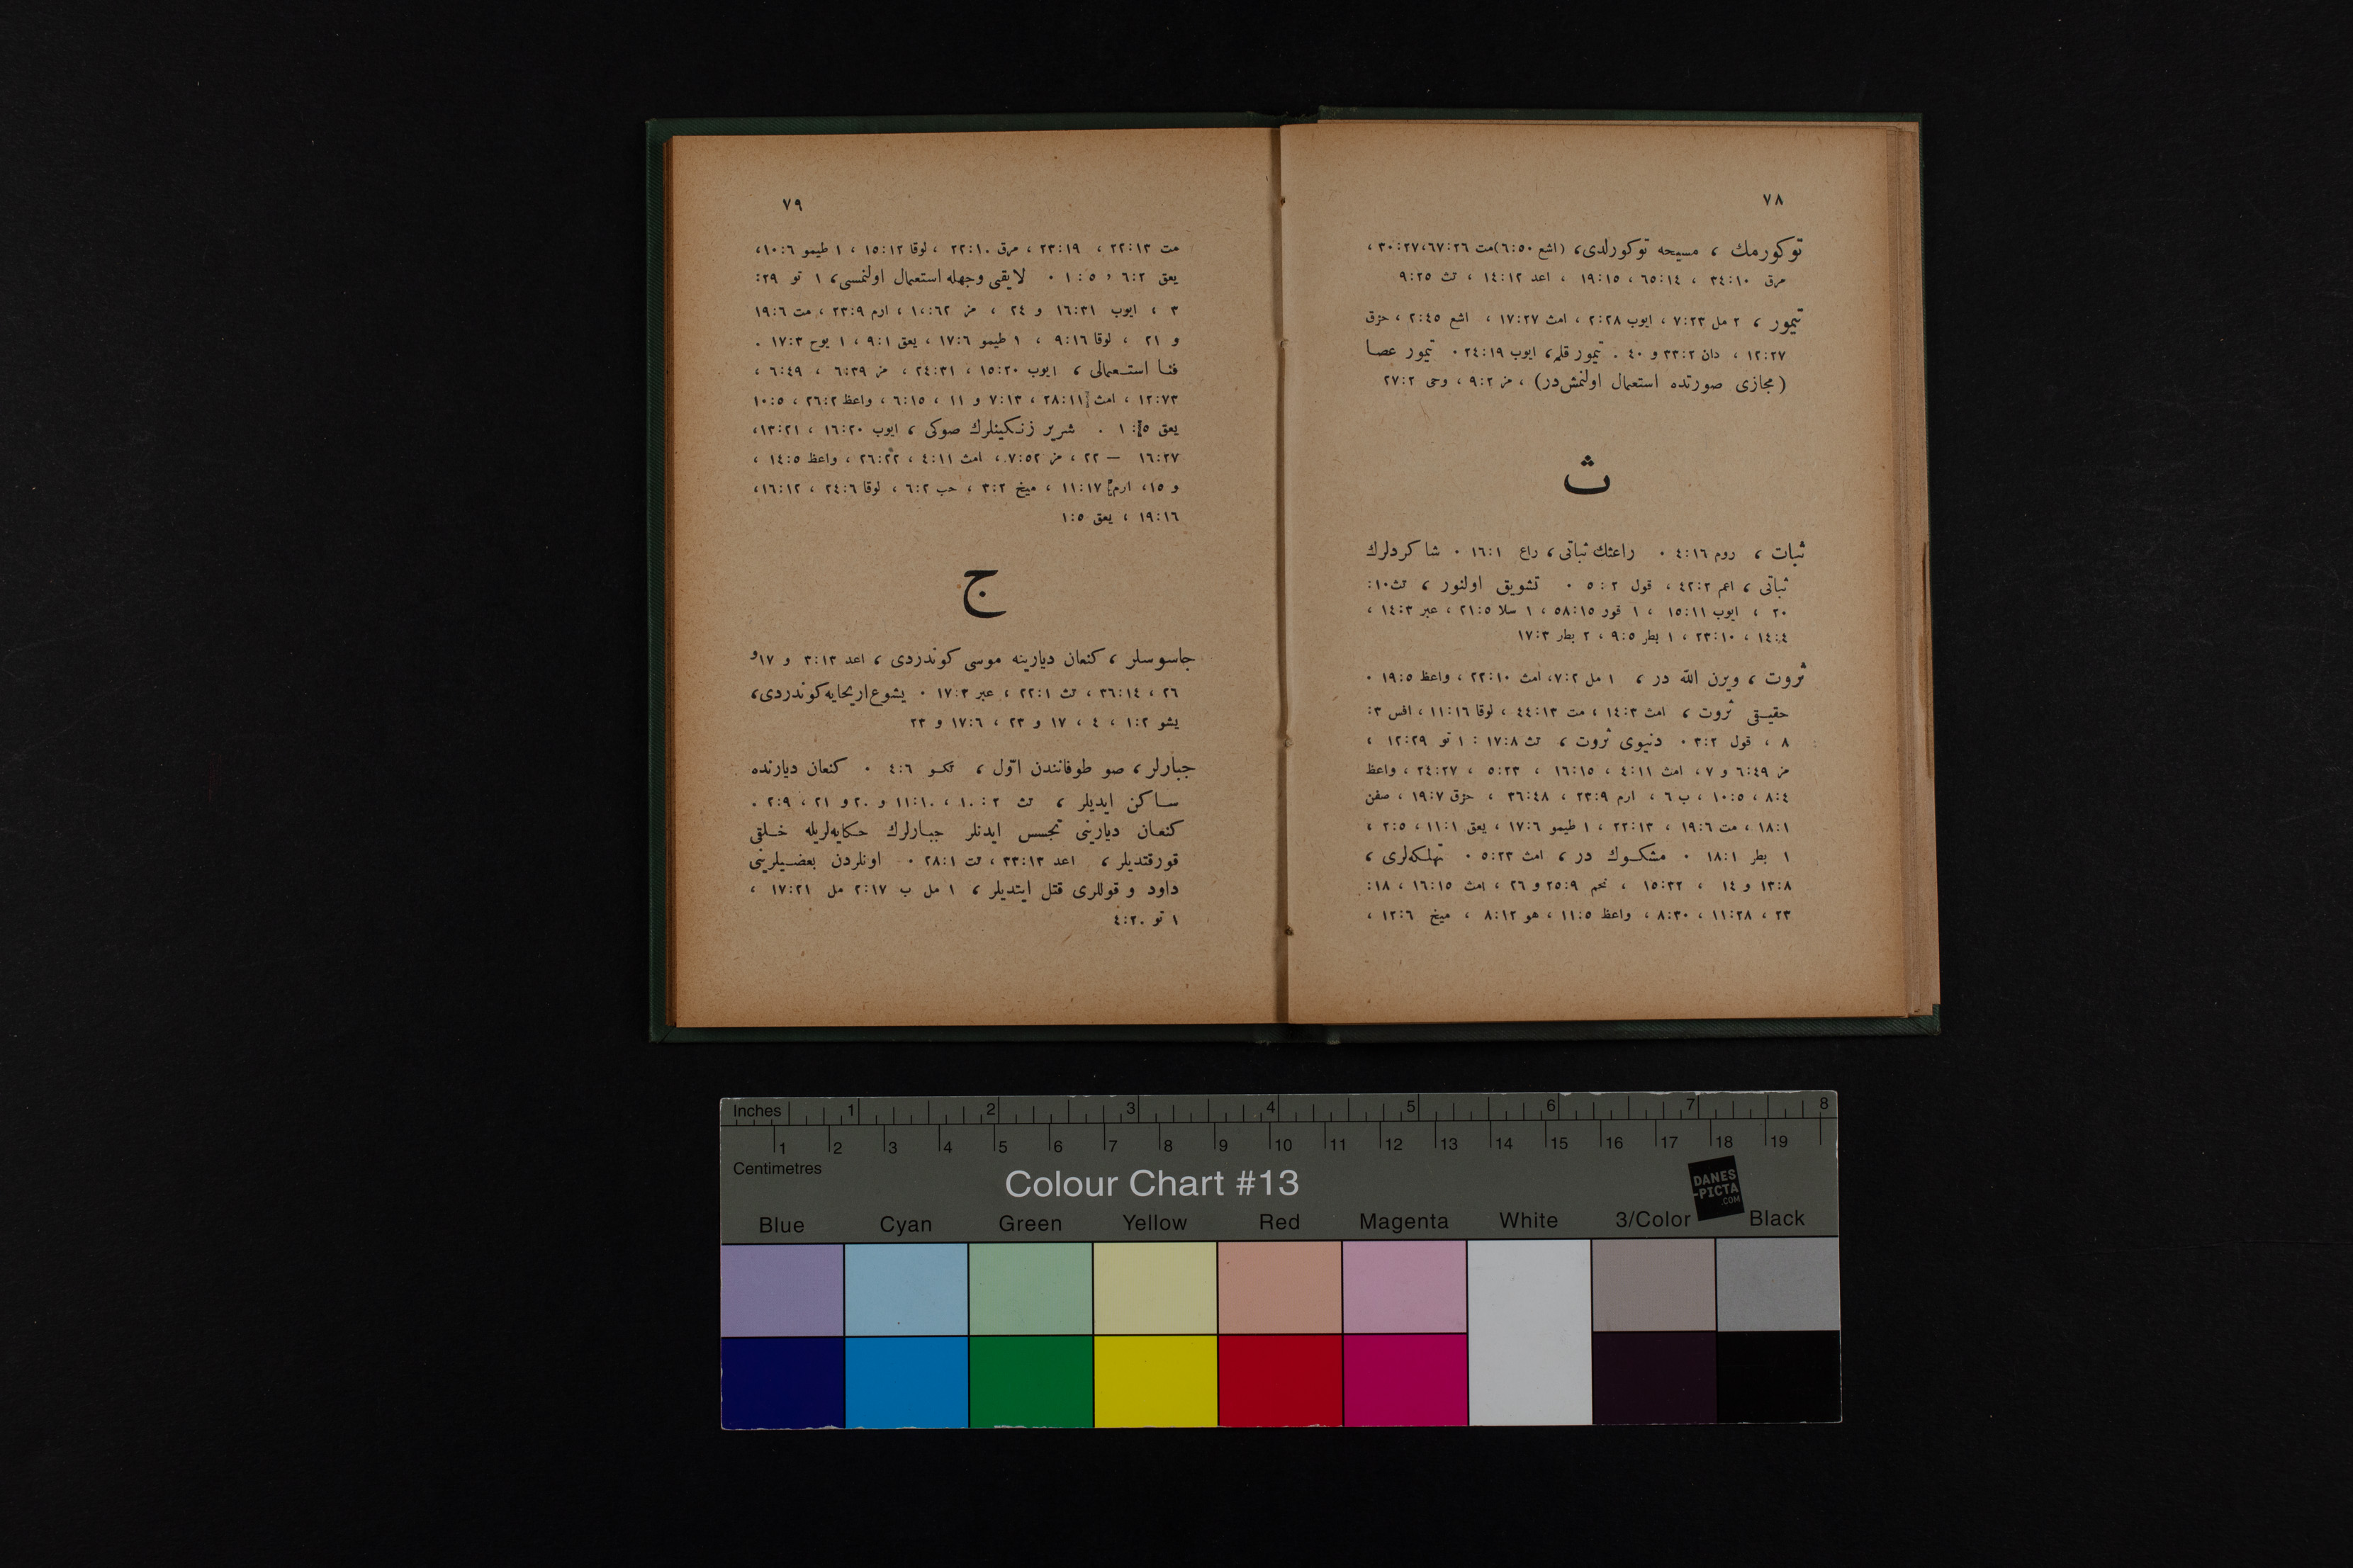 ٧٨
توكورمك ، مسيحه توكورلدى، (اشع ٥٠:٦)مت ٦٧:٢٦،٣٠:٢٧ ،
مرق ٣٤:١٠ ، ٦٥:١٤ ، ١٩:١٥ ، اعد ١٤:١٢ ، تث ٩:٢٥
تيمور ، ٢ مل ٧:٢٣ ، ايوب ٢:٢٨ ، امث ١٧:٢٧ ، اشع ٢:٤٥ ، حزق
١٢:٢٧ ، دان ٣٣:٢ و ٤٠ . تيمور قلم، ايوب ٢٤:١٩ . تيمور عصا
(مجازى صورتده استعمال اولنمش‌در) ، مز ٩:٢ ، وحى ٢٧:٢
ث
ثبات ، روم ٤:١٦ . راعثك ثباتى، راع ١٦:١ . شاكردلرك
ثباتى ، اعم ٤٢:٢ ، قول ٥:٢ . تشويق اولنور ، تث١٠:
٢٠ ، ايوب ١٥:١١ ، ١ قور ٥٨:١٥ ، ١ سلا ٢١:٥ ، عبر ١٤:٣ ،
١٤:٤ ، ٢٣:١٠ ، ١ بطر ٩:٥ ، ٢ بطر ١٧:٣
ثروت ، ويرن الله در ، ١ مل ٧:٢، امث ٢٢:١٠ ، واعظ ١٩:٥ .
حقيقى ثروت ، امث ١٤:٣ ، مت ٤٤:١٣ ، لوقا ١١:١٦ ، افس ٣:
٨ ، قول ٣:٢ . دنيوى ثروت ، تث ١٧:٨ : ١ تو ١٢:٢٩ ،
مز ٦:٤٩ و ٧ ، امث ٤:١١ ، ١٦:١٥ ، ٥:٢٣ ، ٢٤:٢٧ ، واعظ
٨:٤ ، ١٠:٥ ، ب ٦ ، ارم ٢٣:٩ ، ٣٦:٤٨ ، حزق ١٩:٧ ، صفن
١٨:١ ، مت ١٩:٦ ، ٢٢:١٣ ، ١ طيمو ١٧:٦ ، يعق ١١:١ ، ٢:٥ ،
١ بطر ١٨:١ . مشكوك در ، امث ٥:٢٣ . تهلكه‌لرى ،
١٣:٨ و ١٤ ، ١٥:٣٢ ، نحم ٢٥:٩ و ٢٦ ، امث ١٦:١٥ ، ١٨:
٢٣ ، ١١:٢٨ ، ٨:٣٠ ، واعظ ١١:٥ ، هو ٨:١٢ ، ميخ ١٢:٦ ،
٧٩
مت ٢٢:١٣ ، ٢٣:١٩ ، مرق ٢٢:١٠ ، لوقا ١٥:١٢ ، ١ طيمو ١٠:٦،
يعق ٦:٢ ، ١:٥ . لايقى وجهله استعمال اولنمسى، ١ تو ٢٩:
٣ ، ايوب ١٦:٣١ و ٢٤ ، مز ١٠:٦٢ ، ارم ٢٣:٩ ، مت ١٩:٦
و ٢١ ، لوقا ٩:١٦ ، ١ طيمو ١٧:٦ ، يعق ٩:١ ، ١ يوح ١٧:٣ .
فنا استعمالى ، ايوب ١٥:٢٠ ، ٢٤:٣١ ، مز ٦:٣٩ ، ٦:٤٩ ،
١٢:٧٣ ، امث ٢٨:١١ ، ٧:١٣ و ١١ ، ٦:١٥ ، واعظ ٢٦:٢ ، ١٠:٥
يعق ١:٥ . شرير زنكينلرك صوكى ، ايوب ١٦:٢٠ ، ١٣:٢١،
١٦:٢٧ — ٢٢ ، مز ٧:٥٢ ، امث ٤:١١ ، ٢٦:٢٢ ، واعظ ١٤:٥ ،
و ١٥ ، ارم ١١:١٧ ، ميخ ٣:٢ ، حب ٦:٢ ، لوقا ٢٤:٦ ، ١٦:١٢،
١٩:١٦ ، يعق ١:٥
ج
جاسوسلر ، كنعان ديارينه موسى كوندردى ، اعد ٣:١٣ و ١٧و
٢٦ ، ٣٦:١٤ ، تث ٢٢:١ ، عبر ١٧:٣ . يشوع اريحايه كوندردى،
يشو ١:٢ ، ٤ ، ١٧ و ٢٣ ، ١٧:٦ و ٢٣
جبارلر ، صو طوفانندن اوّل ، تكو ٤:٦ . كنعان ديارنده
ساكن ايديلر ، تث ١٠:٢ ، ١١:١٠ و ٢٠ و ٢١ ، ٢:٩ .
كنعان ديارينى تجسس ايدنلر جبارلرك حكايه‌لريله خلقى
قورقتديلر ، اعد ٣٣:١٣ ، تث ٢٨:١ . اونلردن بعضيلرينى
داود و قوللرى قتل ايتديلر ، ١ مل ب ٢:١٧ مل ١٧:٢١ ،
١ تو ٤:٢٠
Inches 1 2 3 4 5 6 7 8
1 2 3 4 5 6 7 8 9 10 11 12 13 14 15 16 17 18 19
Centimetres
Colour Chart #13
DANES
-PICTA
.COM
Blue Cyan Green Yellow Red Magenta White 3/Color Black